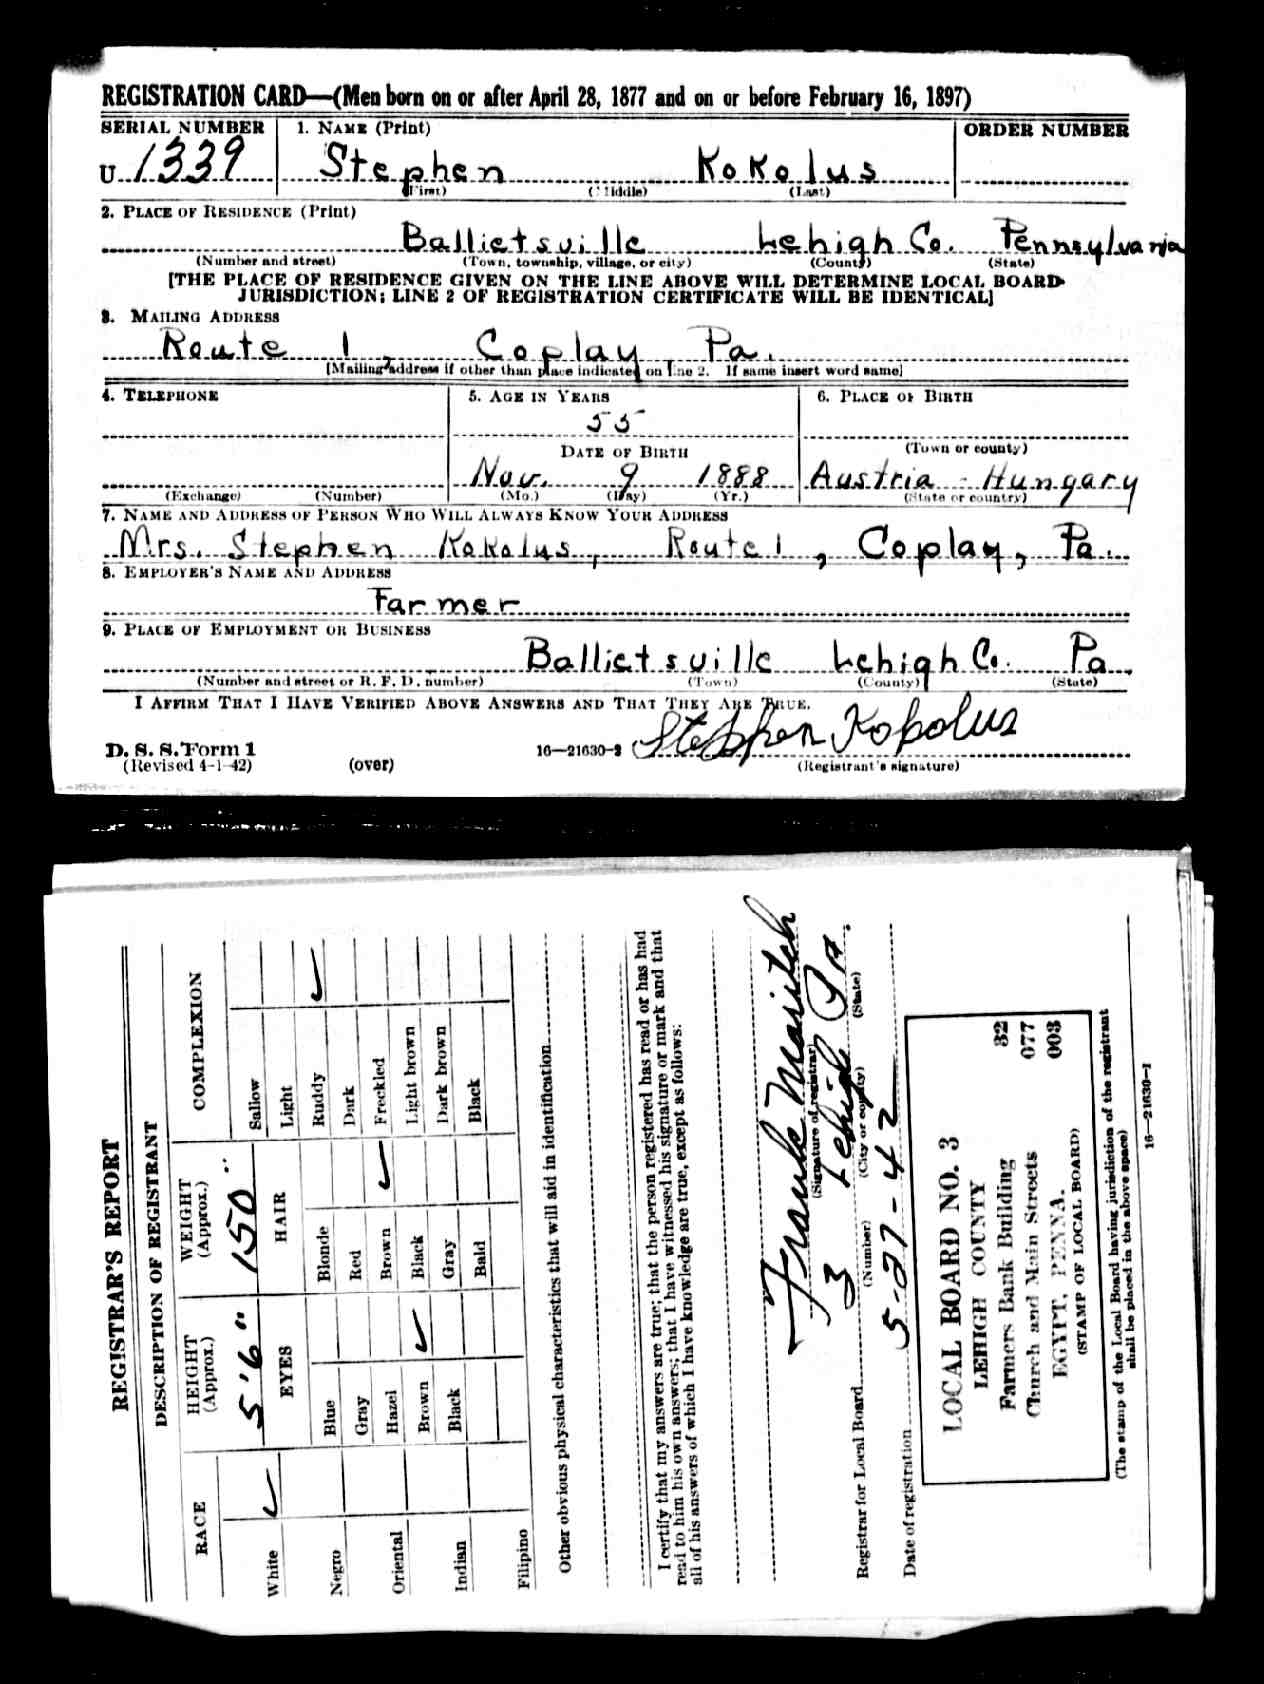 REGISTRATION CARD—(Men born on or after April 28, 1877 and on or before February 16, 1897)
SERIAL NUMBER 1. NAME (Print) ORDER NUMBER
U 1339 Stephen Kokolus
(First) (Middle) (Last)
2. PLACE OF RESIDENCE (Print)
Ballietsville Lehigh Co. Pennsylvania
(Number and street) (Town, township, village, or city) (County) (State)
[THE PLACE OF RESIDENCE GIVEN ON THE LINE ABOVE WILL DETERMINE LOCAL BOARD
JURISDICTION; LINE 2 OF REGISTRATION CERTIFICATE WILL BE IDENTICAL]
3. MAILING ADDRESS
Route 1, Coplay, Pa.
[Mailing address if other than place indicated on line 2. If same insert word same]
4. TELEPHONE 5. AGE IN YEARS 6. PLACE OF BIRTH
55
DATE OF BIRTH (Town or county)
Nov. 9 1888 Austria-Hungary
(Exchange) (Number) (Mo.) (Day) (Yr.) (State or country)
7. NAME AND ADDRESS OF PERSON WHO WILL ALWAYS KNOW YOUR ADDRESS
Mrs. Stephen Kokolus, Route 1, Coplay, Pa.
8. EMPLOYER'S NAME AND ADDRESS
Farmer
9. PLACE OF EMPLOYMENT OR BUSINESS
Ballietsville Lehigh Co. Pa.
(Number and street or R. F. D. number) (Town) (County) (State)
I AFFIRM THAT I HAVE VERIFIED ABOVE ANSWERS AND THAT THEY ARE TRUE.
Stephen Kokolus
D. S. S. Form 1 16—21630-2
(Revised 4-1-42) (over) (Registrant's signature)
REGISTRAR'S REPORT
DESCRIPTION OF REGISTRANT
RACE HEIGHT (Approx.) WEIGHT (Approx.) COMPLEXION
White ✓ 5'6" 150 Sallow
EYES HAIR Light
Blue Blonde Ruddy ✓
Negro Gray Red Dark
Oriental Hazel Brown ✓ Freckled
Brown ✓ Black Light brown
Indian Black Gray Dark brown
Filipino Bald Black
Other obvious physical characteristics that will aid in identification
I certify that my answers are true; that the person registered has read or has had
read to him his own answers; that I have witnessed his signature or mark and that
all of his answers of which I have knowledge are true, except as follows:
Frank
(Signature of registrar)
Registrar for Local Board 3 Lehigh Pa.
(Number) (City or county) (State)
Date of registration 5-27-42
LOCAL BOARD NO. 3 32
LEHIGH COUNTY 077
Farmers Bank Building 003
Church and Main Streets
EGYPT, PENNA.
(STAMP OF LOCAL BOARD)
(The stamp of the Local Board having jurisdiction of the registrant
shall be placed in the above space)
16—21630-1